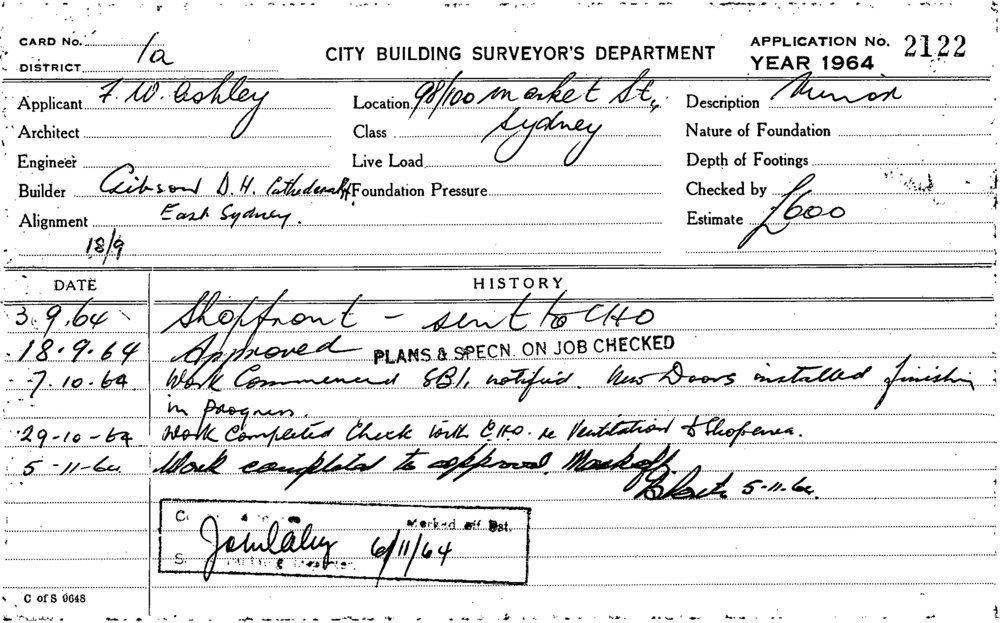 CARD No. 1a CITY BUILDING SURVEYOR'S DEPARTMENT APPLICATION No. 2122
DISTRICT YEAR 1964
Applicant F. W. Ashley Location 98/100 Market St., Description Minor
Architect Class Sydney Nature of Foundation
Engineer Live Load Depth of Footings
Builder Gibson D. H. Foundation Pressure Checked by
Alignment East Sydney. Estimate £600
18/9
DATE HISTORY
3.9.64 Shopfront - sent to CHO
18.9.64 Approved PLANS & SPECN. ON JOB CHECKED
7.10.64 Work Commenced SBI, notified. New Doors installed finishing
in progress.
29-10-64 Work Completed Check with C.H.O. re Ventilation & Shoparea.
5-11-64 Work completed to approval. Markoff.
5-11-64.
Marked off Dat.
6/11/64
C of S 9648